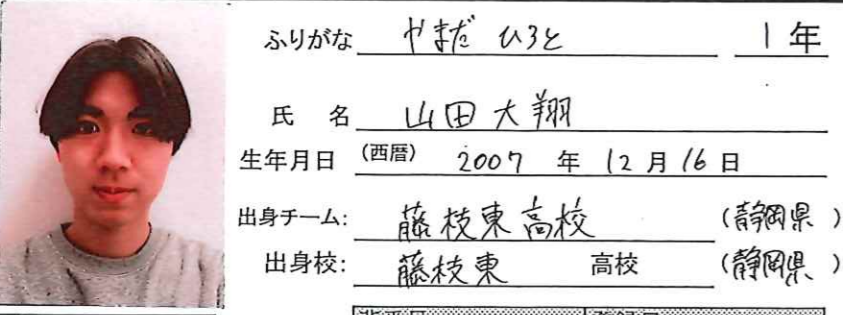 ふりがな やまだ ひろと 1年
氏 名 山田大翔
生年月日 (西暦) 2007 年 12 月 16 日
出身チーム: 藤枝東高校 (静岡県)
出身校: 藤枝東 高校 (静岡県)